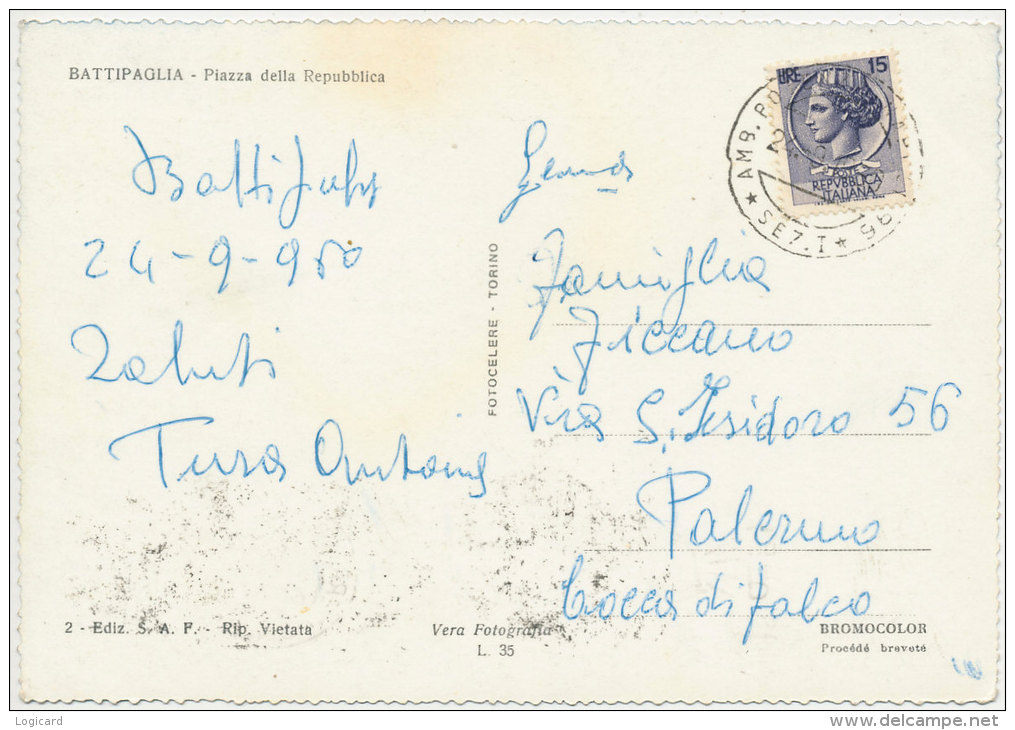 BATTIPAGLIA - Piazza della Repubblica
LIRE 15
POSTE
REPVBBLICA
ITALIANA
AMB. PO
★ SEZ. I ★
24-9-950
Saluti
Tura Antonio
FOTOCELERE - TORINO
Famiglia
Ficcano
Via S. Isidoro 56
Palermo
Bocca di falco
2 - Ediz. S. A. F. - Rip. Vietata
Vera Fotografia
L. 35
BROMOCOLOR
Procédé breveté
Logicard
www.delcampe.net